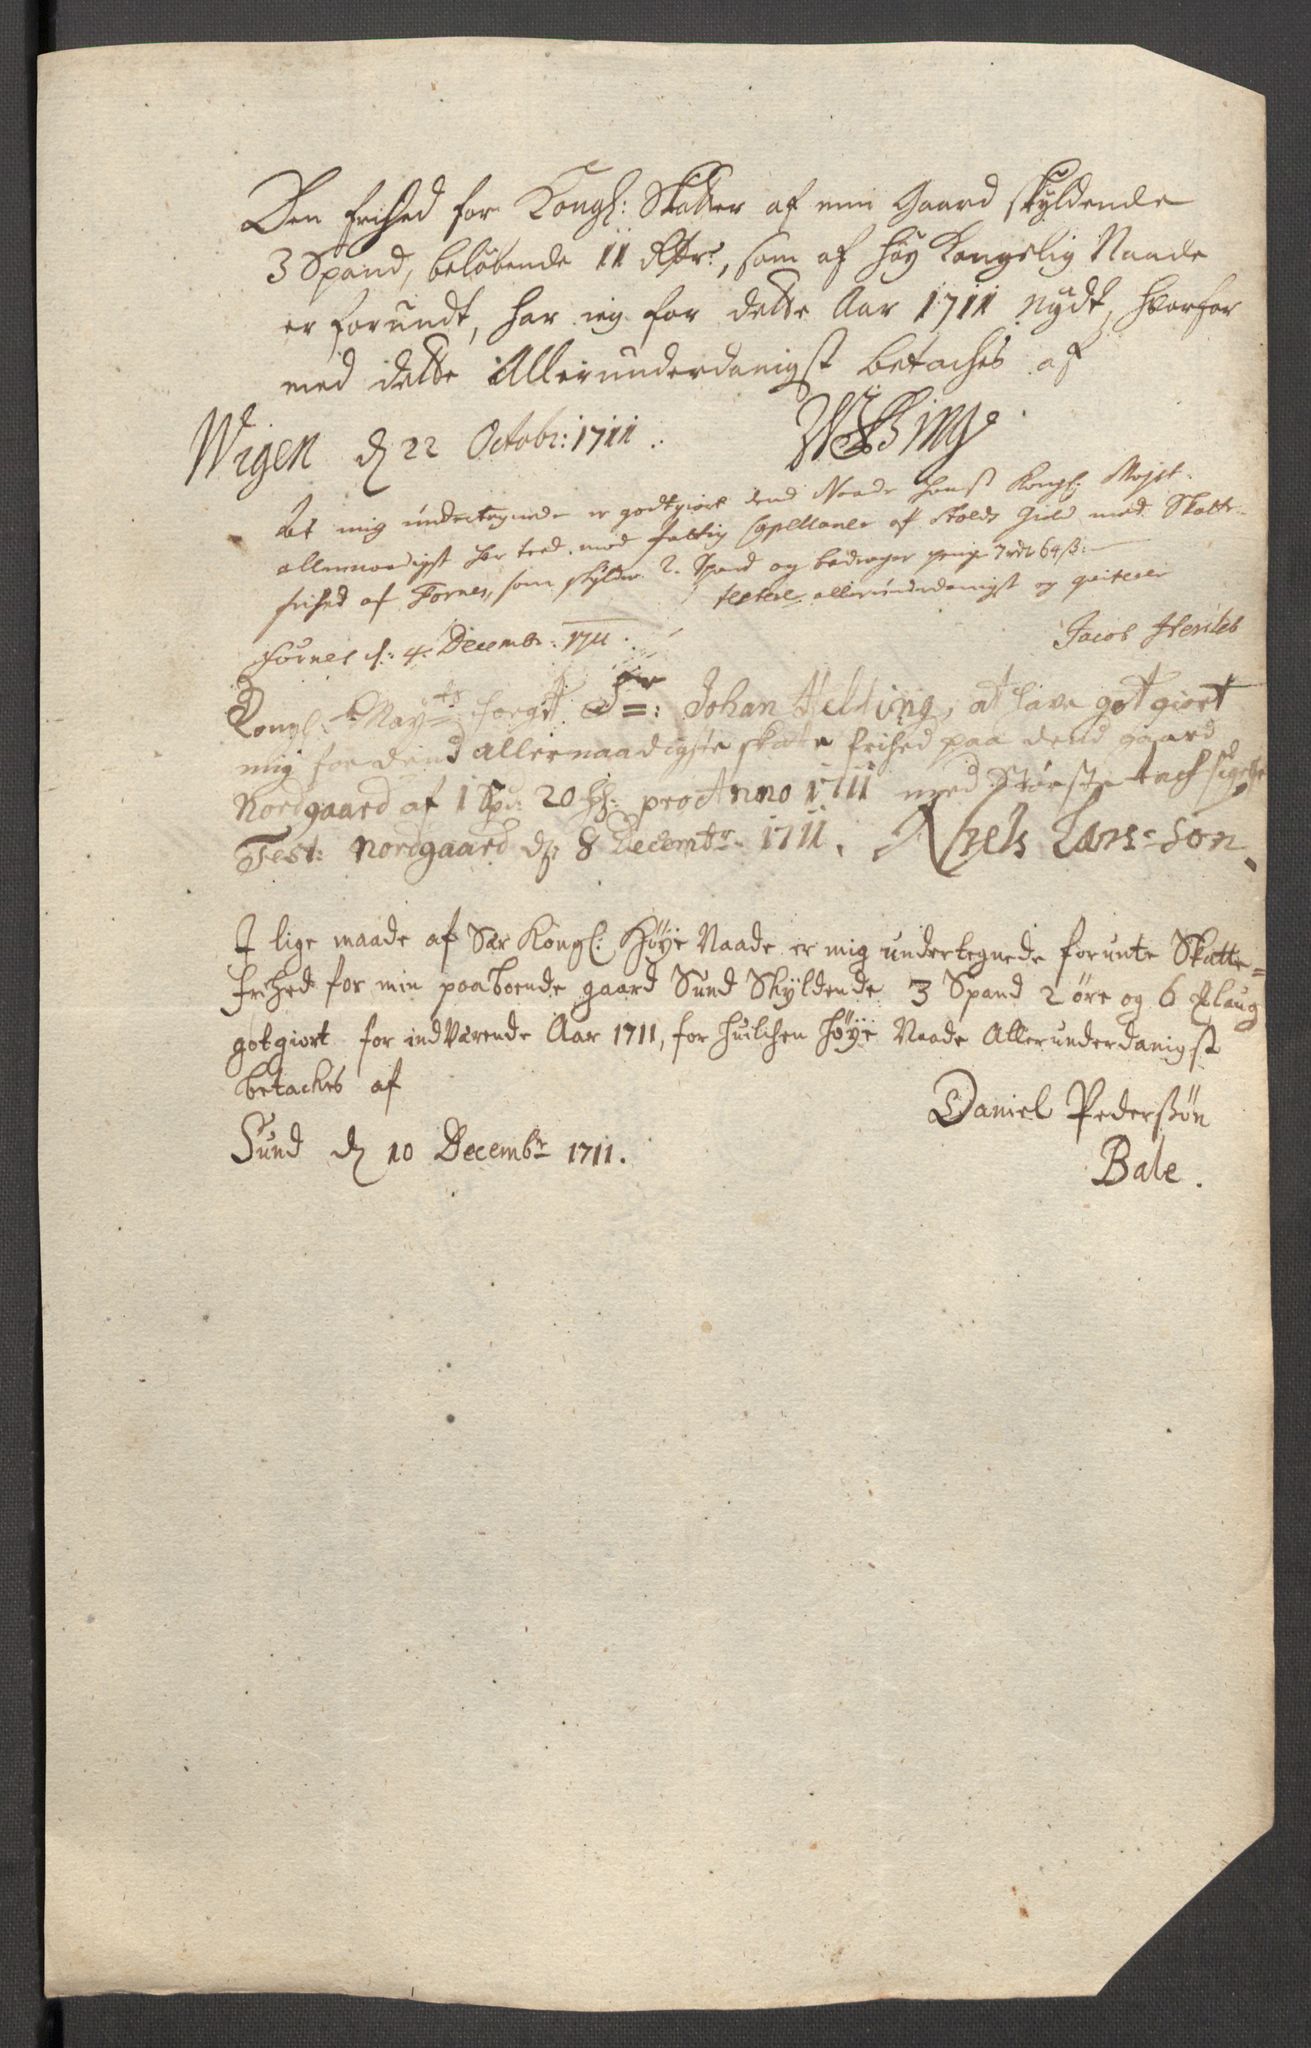 Den frihed for Kongl: Skatter af min Gaard skyldende
3 Spand, beløbende 11 Rdr:, som af høy Kongelig Naade
er forundt, har ieg for dette Aar 1711 nÿdt, hvorfor
med dette Allerunderdanigst betaches af
Wigen d 22 Octobr: 1711.
At mig undertegnede er godtgiort dend Naade hans Kongl: Mayst.
allernaadigst har med Capellaner af Gield med Skatte-
frihed af Fornes, som skylder 2. Spand og bedrager penge 7 rdr 64 ß:
allerunderdanigst og qviterer
Fornes d: 4. Decembr: 1711.
Jacob
Kongl. May:ts fogt Sr=: Johan Helting, at have gotgiort
mig for dend allernaadigste skatte frihed paa dend gaard
Nordgaard af 1 Spd: 20 pro Anno 1711 med Største tachsigelse
Test: Nordgaard d: 8 Decembr. 1711.
Niels Lars=Son
J lige maade af Sær Kongl: Høÿe Naade er mig undertegnede forunte Skatte=
frihed for min paaboende gaard Sund Skÿldende 3 Spand 2 øre og 6
gotgiort for indværende Aar 1711, for huilchen høÿe Naade Allerunderdanigst
betaches af
Daniel Pederßøn
Sund d 10 Decembr 1711.
Bale.